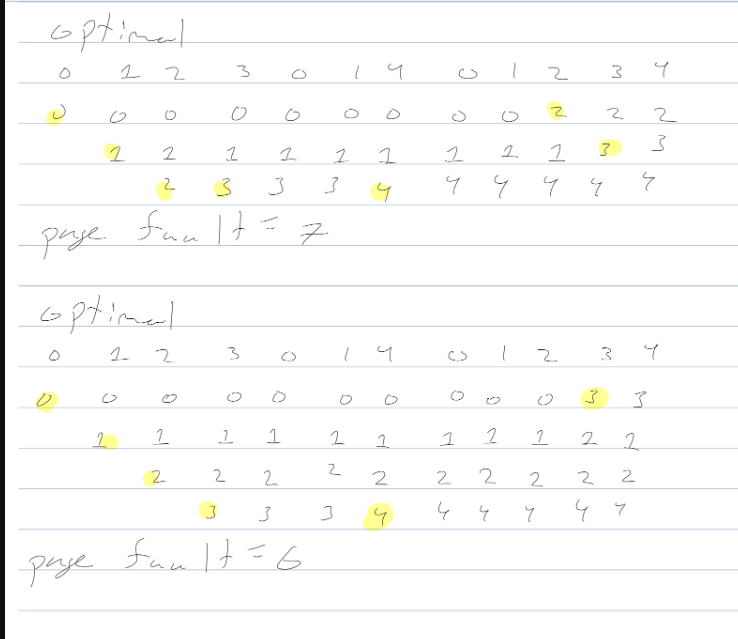 optimal
0 1 2 3 0 1 4 0 1 2 3 4
0 0 0 0 0 0 0 0 0 2 2 2
1 1 1 1 1 1 1 1 1 3 3
2 3 3 3 4 4 4 4 4 4
page fault = 7
optimal
0 1 2 3 0 1 4 0 1 2 3 4
0 0 0 0 0 0 0 0 0 0 3 3
1 1 1 1 1 1 1 1 1 1 1
2 2 2 2 2 2 2 2 2 2
3 3 3 4 4 4 4 4 4
page fault = 6